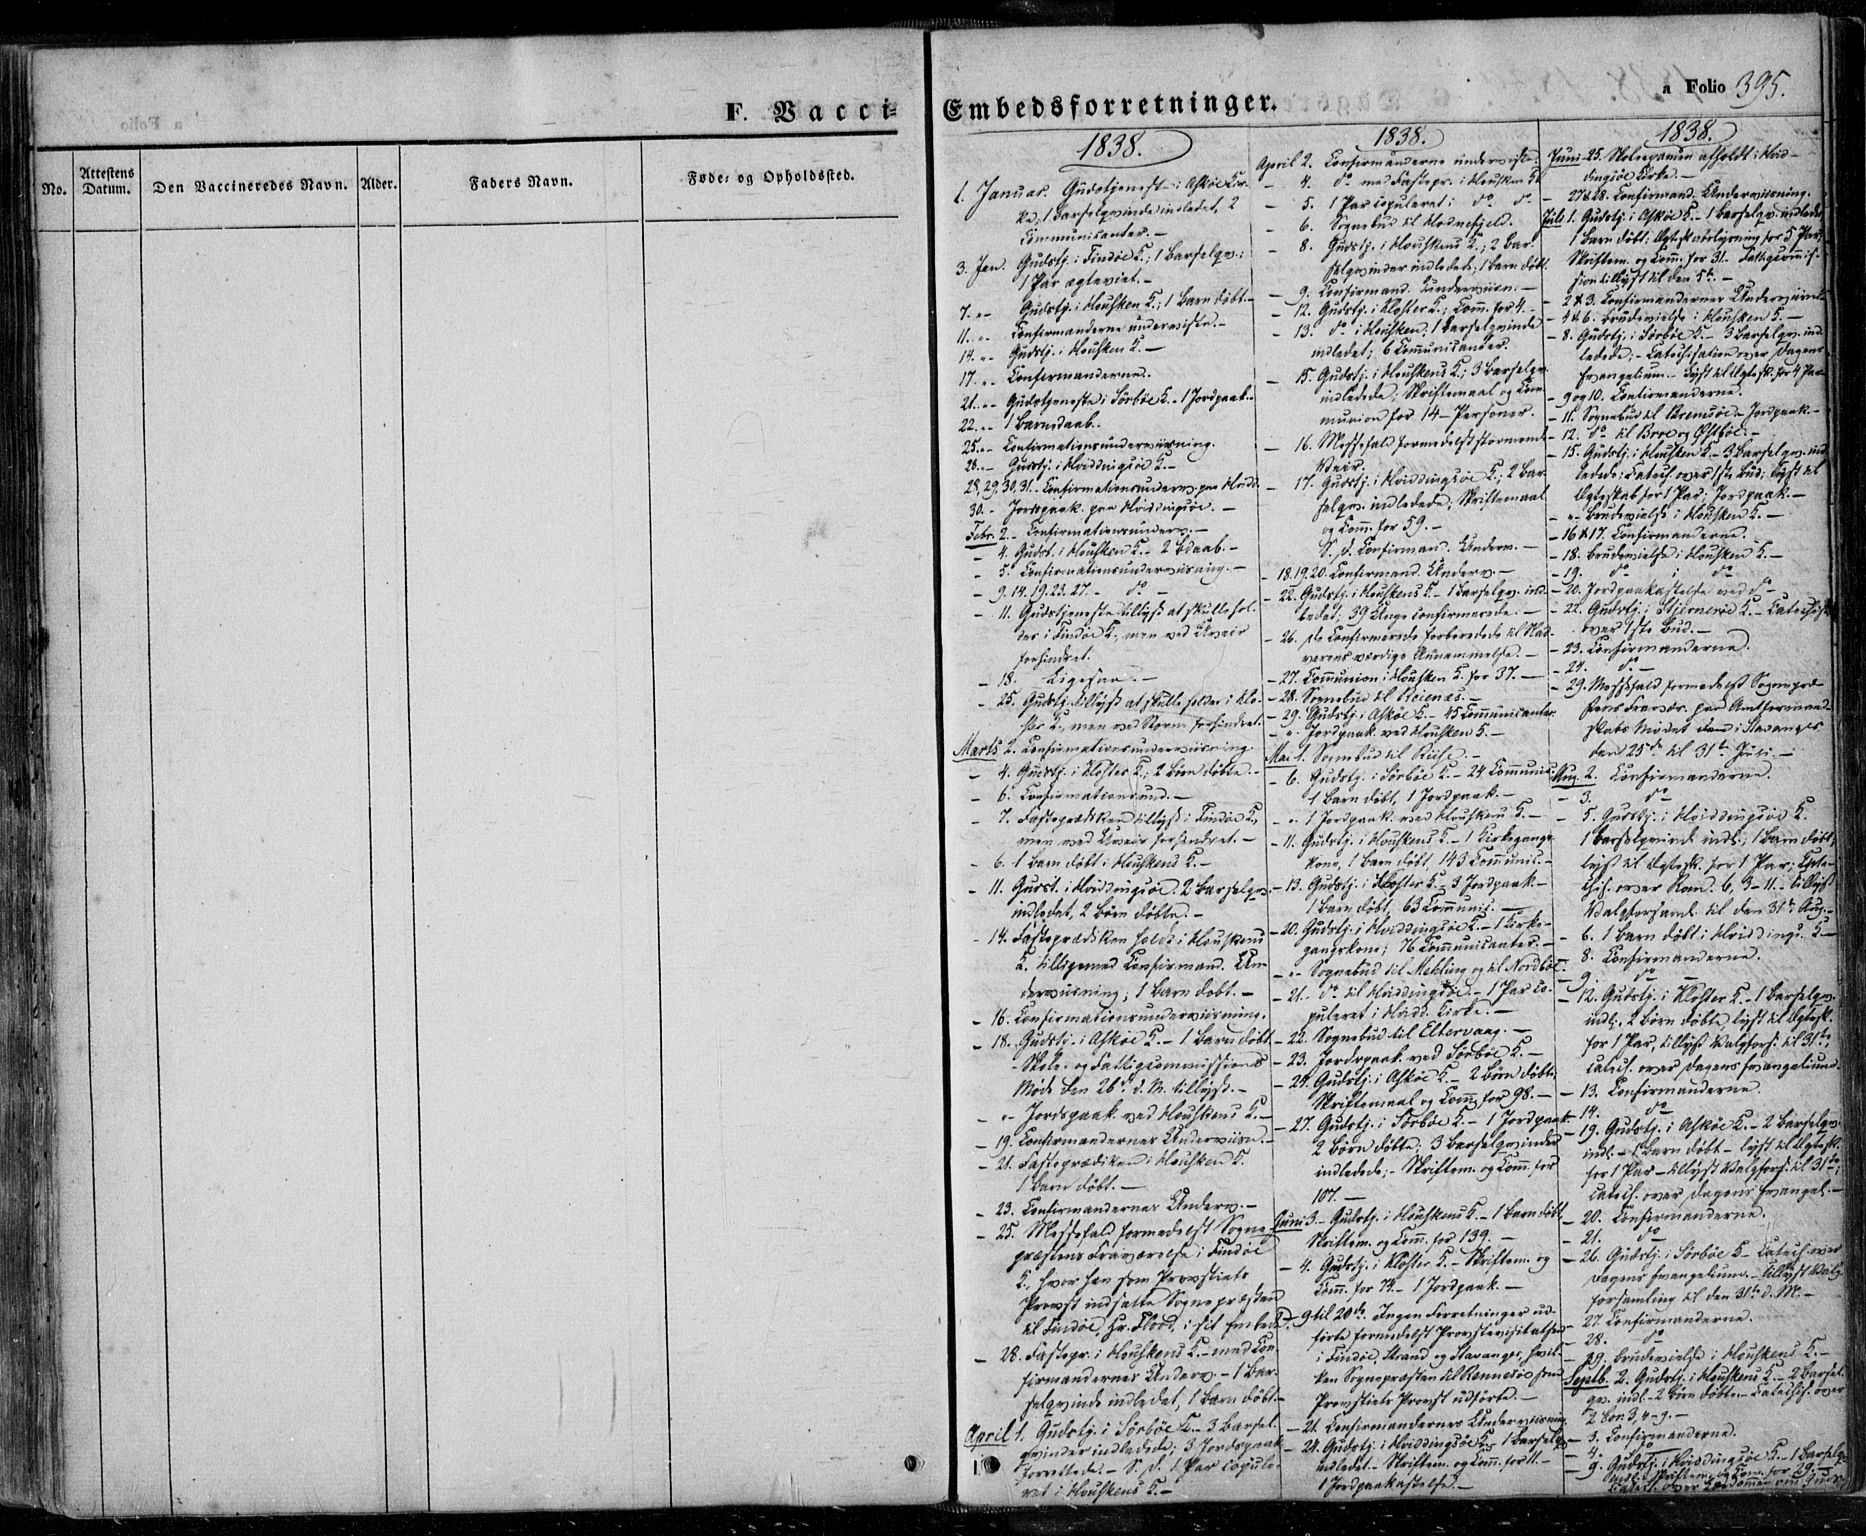 F. Vacci-
No.
Attestens Datum.
Den Vaccineredes Navn.
Alder.
Faders Navn.
Føde- og Opholdssted.
a Folio 395.
Embedsforretninger.
1838.
1. Januar. Gudstjenest i Askøe Kir-
ke, 1 Barselqvinde indledet, 2
Communicanter. –
3. Jan. Gudstj. i Findøe K.; 1 Barselqv.;
1 Par ægteviet. –
7. „ – Gudstj. i Housken K.; 1 Barn døbt. –
11. „ – Confirmanderne underviste. –
14. „ – Gudstj. i Housken K. –
17. „ – Confirmanderne. –
21. „ – Gudstjeneste i Sørbøe K. – 1 Jordpaak. –
22. „ – 1 Barnedaab. –
25. „ – Confirmationsunderviisning.
28. „ – Gudstj. i Hviddingsøe K. –
28, 29, 30, 31. – Confirmationsunderv. paa Hvidd.
30. – Jordspaak. paa Hviddingsøe. –
Febr. 2. – Confirmationsunderv. –
– 4. Gudst. i Housken K. – 2 Bdaab. –
– 5. Confirmationsunderviisning. –
– 9. 14. 19. 23. 27. – do –
– 11. Gudstjeneste tillyst at skulle hol-
des i Findøe K., men ved Uveir
forhindret.
– 18. Ligesaa. –
– 25. Gudstj. tillyst at skulle holdes i Klo-
ster K., men ved Storm forhindret.
Marts 2. Confirmationsunderviisning.
– 4. Gudstj. i Kloster K.; 2 Børn døbte. –
– 6. Confirmationsund. –
– 7. Fasteprædiken tillyst i Findøe K.,
men ved Uveir forhindret. –
– 6. 1 Barn døbt i Houskens K. –
– 11. Gudst. i Hviddingsøe. 2 Barselqv.
indledet, 2 Børn døbte. –
– 14. Fasteprædiken holdt i Houskens
K. tilligemed Confirmand. Un-
derviisning; 1 Barn døbt. –
– 16. Confirmationsunderviisning.
– 18. Gudstj. i Askøe K. – 1 Barn døbt
– Skole- og Fattigcommissions
Møde den 26de d. M. tillyst. –
– „ – Jordspaak. ved Houskens K. –
– 19. Confirmandernes Underviisn. –
– 21. Fasteprædiken i Housken K.
1 Barn døbt. –
– 23. Confirmandernes Underv. –
– 25. Messefald formedelst Sogne-
præstens Fraværelse i Findøe
K., hvor han som Provstiets
Provst indsatte Sognepræsten
til Findøe, Hr. Flood, i sit Embede.
– 28. Fastepr. i Houskens K. – med Con-
firmandernes Underv. – 1 Bar-
selqvinde indledet, 1 Barn døbt. –
April 1. Gudstj. i Sørbøe K. – 3 Barsel-
qvinder indledede; 3 Jordspaak.
forrettede. – S. D. 1 Par copule-
ret i Houskens K. –
1838.
April 2. Confirmanderne underviste.
– 4. do med Fastepr. i Housken K.
– 5. 1 Par copuleret i do do –
– 6. Sognebud til Hodnefjeld.
– 8. Gudstj. i Houskens K.; 2 Bar-
selqvinder indledede; 1 Barn døbt.
– 9. Confirmand. Underviisn. –
– 12. Gudstj. i Kloster K.; Comm. for 4. –
– 13. do i Housken; 1 Barselqvinde
indledet; 6 Communicanter.
– 15. Gudstj. i Houskens K.; 3 Barselqv.
indledede; Skriftemaal og Com-
munion for 14 Personer.
– 16. Messefald formedelst stormende
Veir.
– 17. Gudstj. i Hviddingsøe K.; 2 Bar-
selqv. indledede; Skriftemaal
og Comm. for 59. –
S. D. Confirmand. Underv. –
– 18. 19. 20. Confirmand. Underv. –
– 22. Gudstj. i Houskens K. – 1 Barselqv. ind-
ledet; 39 Unge confirmerede. –
– 26. De Confirmerede forberedede til Nad-
verens værdige Annammelse. –
– 27. Communion i Housken K. for 37. –
– 28. Sognebud til Reienæs. –
– 29. Gudstj. i Askøe K. – 45 Communicanter.
– „ Jordpaak. ved Housken K. –
Mai 1. Sognebud til .
– 6. Gudstj. i Sørbøe K. – 24 Communic.
1 Barn døbt, 1 Jordpaak. –
– „ – 1 Jordpaak. ved Housken K. –
– 11. Gudstj. i Houskens K. – 1 Kirkegangs-
kone, 1 Barn døbt 143 Communic. –
– 13. Gudstj. i Kloster K. – 3 Jordpaak. –
1 Barn døbt, 63 Communic. –
– 20. Gudstj. i Hviddingsøe K. – 1 Kirke-
gangskone; 76 Communicanter. –
– „ – Sognebud til Mekling og til Nordbøe.
– 21. – do til Hviddingsøe. – 1 Par co-
puleret i Hvidd. Kirke. –
– 22. Sognebud til Eltervaag. –
– 23. Jordspaak. ved Sørbøe K. –
– 24. Gudstj. i Askøe K. – 2 Børn døbte
Skriftemaal og Comm. for 98. –
– 27. Gudstj. i Sørbøe K. – 1 Jordpaak.
2 Børn døbte; 3 Barselqvinder
indledede; – Skriftem. og Comm. for
107. –
Juni 3. – Gudstj. i Houskens K. – 1 Barn døbt,
Skriftem. og Comm. for 139. –
– 4. Gudstj. i Kloster K. – Skriftem. og
Comm. for 74. – 1 Jordpaak. –
– 9 til 20de. Ingen Forretninger ud-
førte formedelst Provstevisitatsen
i Findøe, Strand og Stavanger, hvil-
ken Sognepræsten til Rennesøe som
Provstiets Provst udførte. –
– 21. Confirmandernes Underviisning
– 24. Gudstj. i Hviddingsøe K. – 1 Barselqv.
indledet. – Skriftem. og Comm. for 11. –
1 Jordpaakastelse. –
1838.
Juni 25. Skoleexamen afholdt i Hvid-
dingsøe Kirke. –
– 27 & 28. Confirmand. Underviisning.
Juli 1. Gudstj. i Askøe K. – 1 Barselqv. indledet,
1 Barn døbt; Ægteskabslysning for 5 Par;
Skriftem. og Comm. for 31. Fattigcommis-
sion tillyst til den 5te. –
– 2 & 3. Confirmandernes Underviisn. –
– 4 & 6. Brudevielse i Housken K. –
– 8. Gudstj. i Sørbøe K. – 3 Barselqv. ind-
ledede; – Catechisation over Dagens
Evangelium. – Lyst til Ægtesk. for 4 Par
– 9 og 10. Confirmanderne.
– 11. Sognebud til Bremsøe – Jordpaak. –
– 12. do til Bore og Østbøe. –
– 15. Gudstj. i Housken K. – 3 Barselqv. ind-
ledede; Catech. over 1ste Bud; lyst til
Ægteskab for 1 Par; Jordpaak. –
– „ – Brudevielse i Housken K. –
– 16 & 17. Confirmanderne.
– 18. Brudevielse i Housken K. –
– 19. do i do
– 20. Jordpaakastelse ved do –
– 22. Gudstj. i Stjernerøe K. – Catechis.
over 1ste Bud. –
– 23. Confirmanderne.
– 24. do –
– 29. Messefald formedelst Sognepræ-
stens Fravær. paa Amtsformand-
skabs Mødet i Stavanger
den 25de til 31te Juli. –
Aug. 2. Confirmanderne.
– 3. do
– 5. Gudstj. i Hviddingsøe K.
1 Barselqvinde indl.; 1 Barn døbt,
lyst til Ægtesk. for 1 Par; Cate-
chis. over Rom. 6, 3–11. – tillyst
Valgforsaml. til den 31te Aug. –
– 6. 1 Barn døbt i Hviddings. K. –
– 8. Confirmanderne.
– 9. do –
– 12. Gudstj. i Kloster K. – 1 Barselqv.
indl. 2 Børn døbte, lyst til Ægtesk.
for 1 Par, tillyst Valgfors. til 31te,
Catech. over Dagens Evangelium.
– 13. Confirmanderne.
– 14. do
– 19. Gudstj. i Askøe K. – 2 Barselqv.
indl. – 1 Barn døbt – lyst til Ægtesk.
for 1 Par – tillyst Valgfors. til 31te;
Catech. over Dagens Evangel. –
– 20. Confirmanderne.
– 21. do –
– 26. Gudstj. i Sørbøe K. – Catech. over
Dagens Evangelium. – tillyst Valg-
forsamling til den 31te d. M. –
– 27. Confirmanderne.
– 28. do
– 29. Brudevielse i Houskens K. –
Septb. 2. Gudstj. i Houskens K. – 2 Barsel-
qv. indl. – 2 Børn døbte. – Catechis. over
2 Cor. 3, 4–9. –
– 3. Confirmanderne.
– 4. do
– 9. Gudstj. i Hviddingsøe K. – 1 Barselqv.
indl. Skriftem. og Com. for 19. –
Catech. over